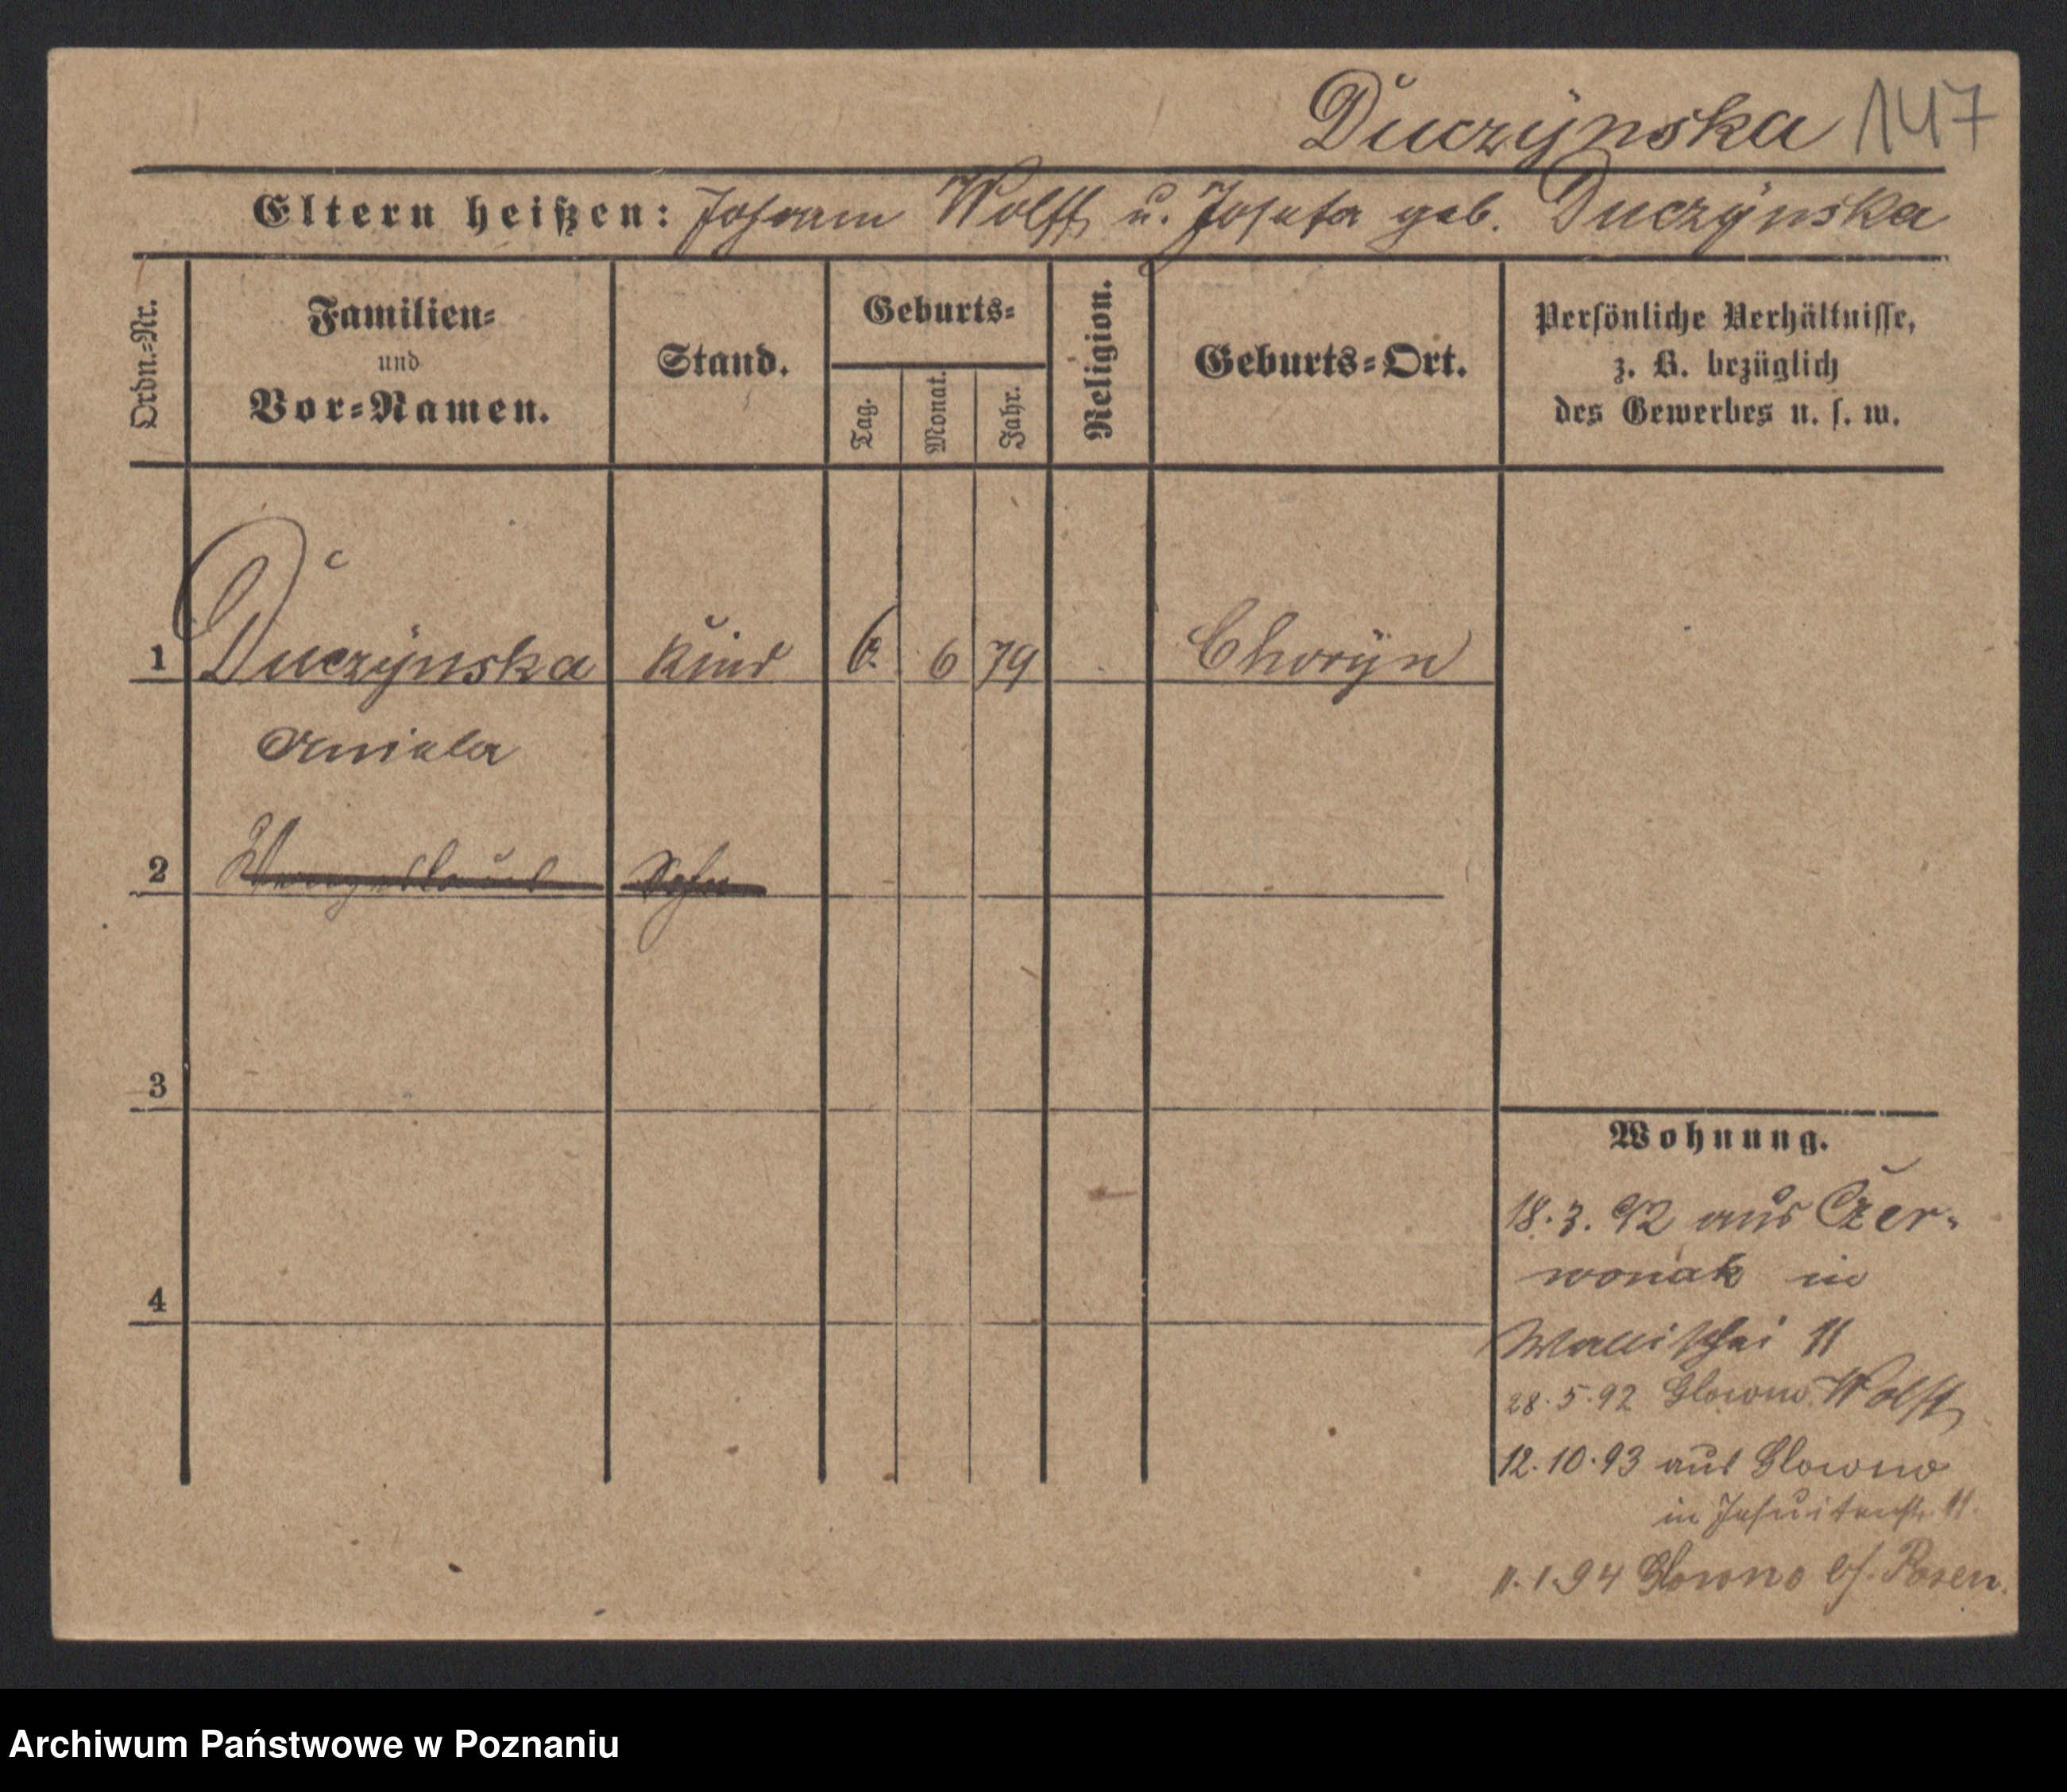 Duczynska 147
Eltern heißen: Johann Wolff u. Josefa geb. Duczynska
Ordn.-Nr.
Familien-
und
Vor-Namen.
Stand.
Geburts-
Tag.
Monat.
Jahr.
Religion.
Geburts-Ort.
Persönliche Verhältnisse,
z. B. bezüglich
des Gewerbes u. s. w.
1 Duczynska Kind 6. 6 79 Choryn
Aniela
2 Sohn
3
4
Wohnung.
18.3.92 aus Czer-
wonak in
Wallischei 11
28.5.92 Glowno Wolff
12.10.93 aus Glowno
in Jesuitenstr. 11.
11.1.94 Glowno b/. Posen.
Archiwum Państwowe w Poznaniu